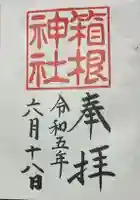 奉拝
箱根神社
令和五年
六月十八日